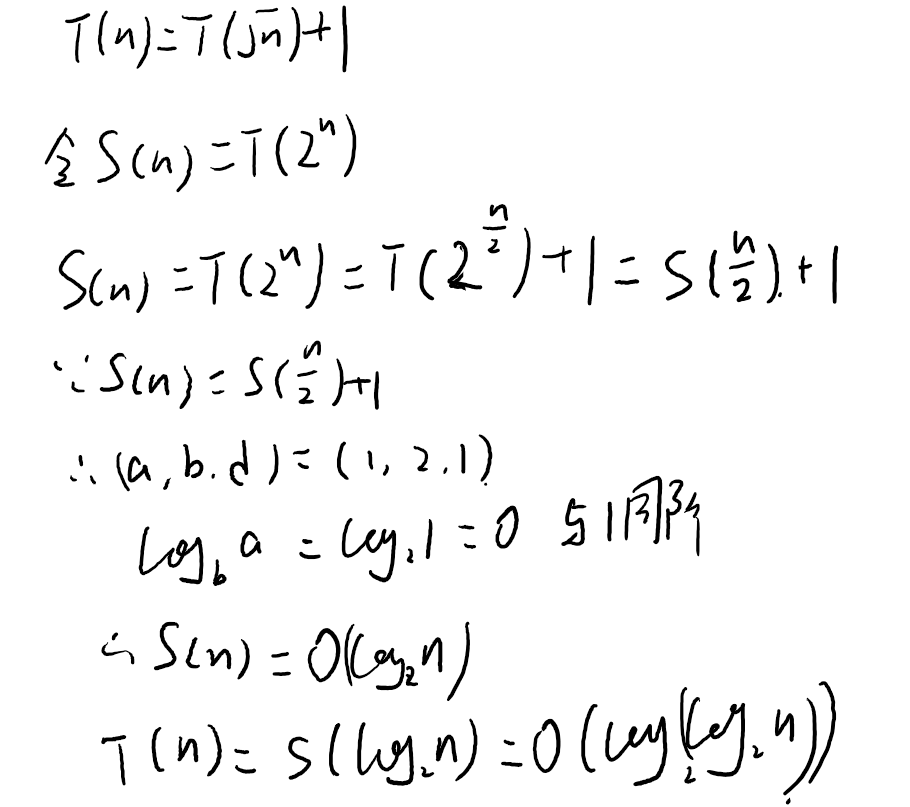 T(n)=T(√n)+1
令 S(n)=T(2^n)
S(n)=T(2^n)=T(2^{n/2})+1=S(n/2)+1
∵S(n)=S(n/2)+1
∴(a,b.d)=(1,2.1)
log_b a=log_2 1=0 与1同阶
∴S(n)=O(log_2 n)
T(n)=S(log_2 n)=O(log_2(log_2 n))